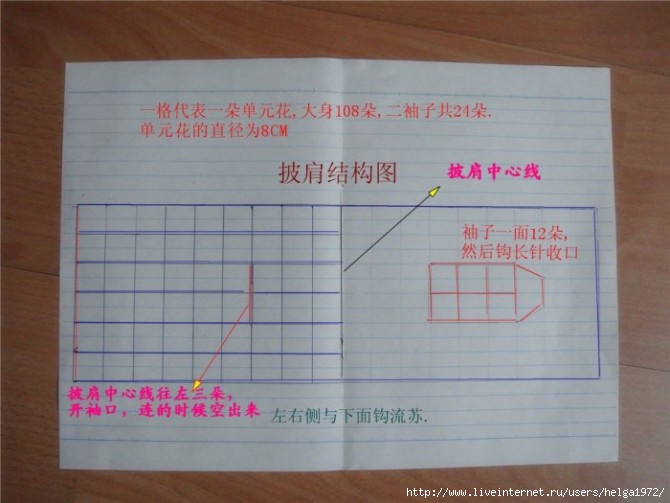 一格代表一朵单元花,大身108朵,二袖子共24朵.
单元花的直径为8CM
披肩结构图
披肩中心线
袖子一面12朵,
然后钩长针收口
披肩中心线往左三朵,
开袖口，连的时候空出来
左右侧与下面钩流苏.
http://www.liveinternet.ru/users/helga1972/